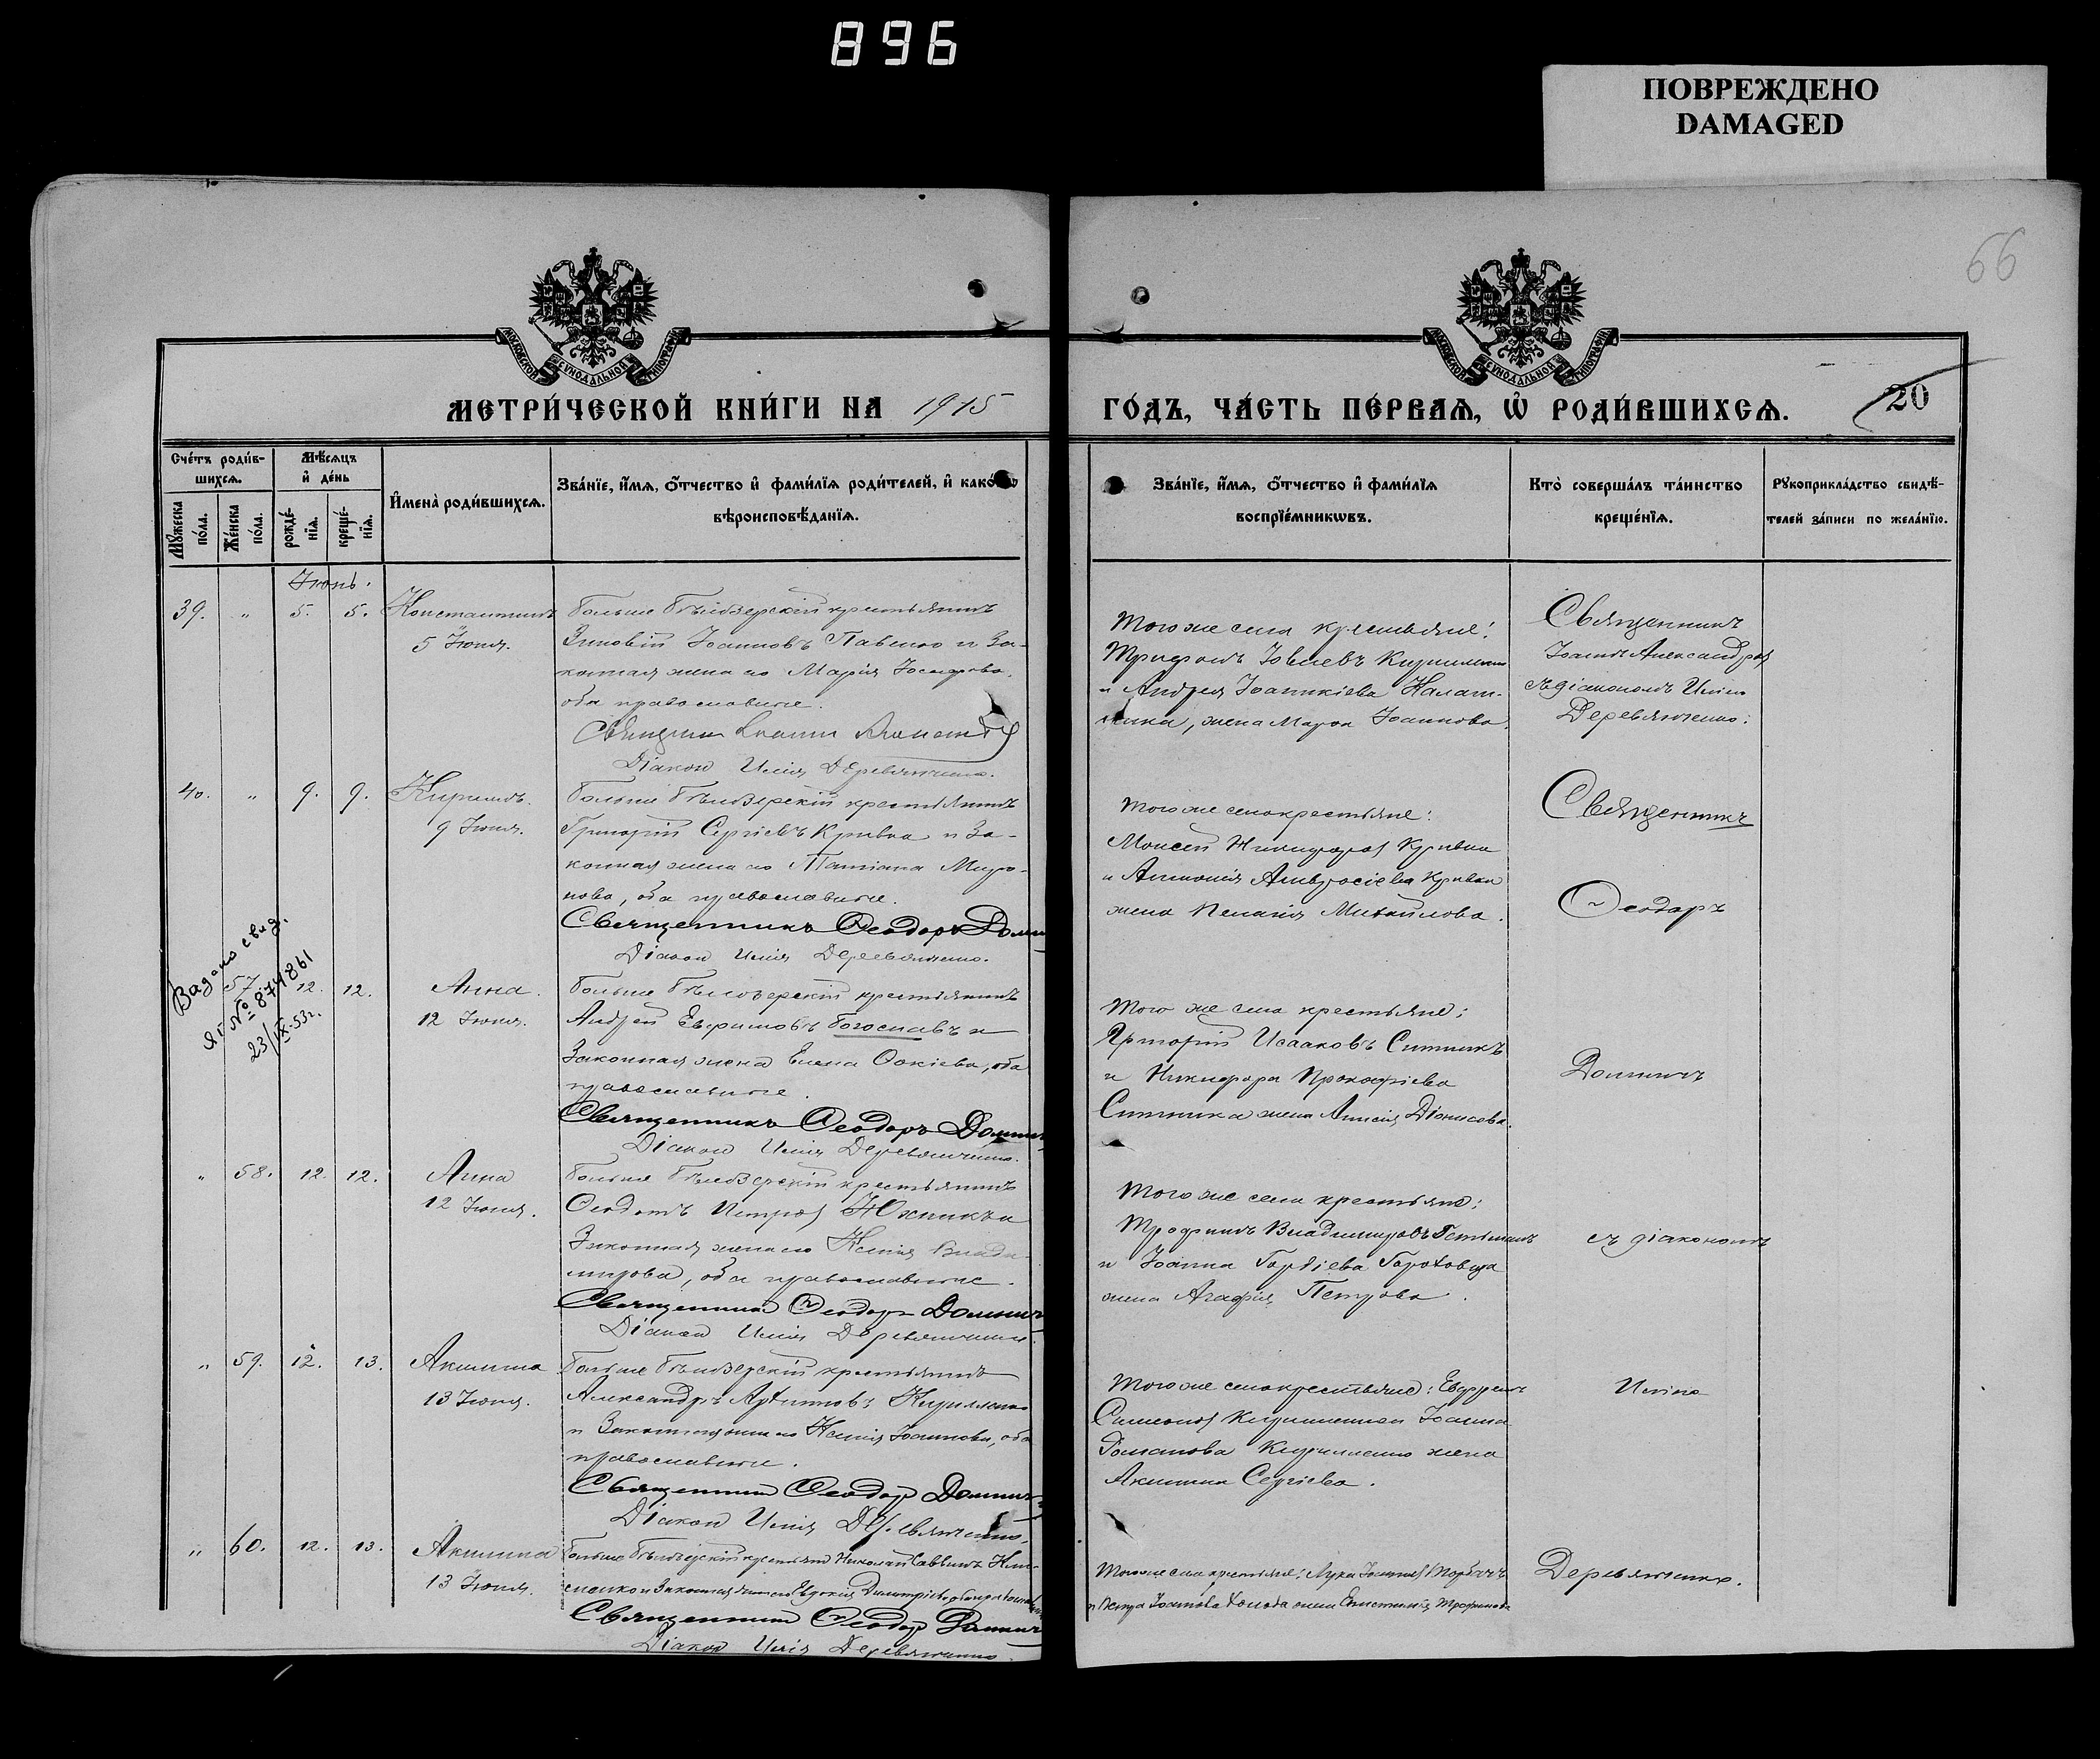 896
ПОВРЕЖДЕНО
DAMAGED
66
МОСКОВСКОЙ СѴНОДАЛЬНОЙ ТИПОГРАФІИ
МОСКОВСКОЙ СѴНОДАЛЬНОЙ ТИПОГРАФІИ
МЕТРИ́ЧЕСКОЙ КНИ́ГИ НА 1915
ГО́ДЪ, ЧА́СТЬ ПЕ́РВАѦ, Ѡ҆ РОДИ́ВШИХСѦ. 20
Сче́тъ роди́в-
шихсѧ.
Мꙋ́жеска по́ла.
Же́нска по́ла.
Мѣ́сѧцъ
и҆ де́нь
рожде́-нїѧ.
креще́-нїѧ.
И҆мена̀ роди́вшихсѧ.
Зва́нїе, и҆́мѧ, ѻ҆́тчество и҆ фами́лїѧ роди́телей, и҆ како́гѡ
вѣроисповѣ́данїѧ.
Зва́нїе, и҆́мѧ, ѻ҆́тчество и҆ фами́лїѧ
воспрїе́мникѡвъ.
Кто̀ соверша́лъ та́инство
креще́нїѧ.
Рꙋкоприкла́дство свидѣ́-
телей за́писи по жела́нїю.
Іюнь.
39. " 5. 5. Константинъ
5 Іюня.
Больше Бѣлозерскій крестьянинъ
Зиновій Іоанновъ Павленко и за-
конная жена его Марія Іосифова,
оба православные.
Священникъ Іоаннъ
Діаконъ Илія Деревянченко.
Того же села крестьяне:
Трифонъ Іовлевъ Кириленко
и Андрея Іоанникіева Калаш-
ника, жена Марѳа Іоаннова.
Священникъ
Іоаннъ Александров
съ діакономъ Иліею
Деревянченко.
40. " 9. 9. Кириллъ.
9 Іюня.
Больше Бѣлозерскій крестьянинъ
Григорій Сергіевъ Кривка и за-
конная жена его Татіана Миро-
нова, оба православные.
Священникъ Ѳеодоръ Домнич
Діаконъ Илія Деревянченко.
Того же села крестьяне:
Моисей Никифоров Кривка
и Антонія Амвросіева Кривки
жена Пелагія Михайлова.
Священникъ
Ѳеодоръ
Выдано свид.
ЯЮ № 874861
23/IX-53г.
57. 12. 12. Анна.
12 Іюня.
Больше Бѣлозерскій крестьянинъ
Андрей Евфимовъ Богославъ и
законная жена Елена Фокіева, оба
православные.
Священникъ Ѳеодоръ Домнич
Діаконъ Илія Деревянченко.
Того же села крестьяне:
Григорій Исааковъ Ситникъ
и Никифора Прокофіева
Ситника жена Анисія Діонисова.
Домничъ
" 58. 12. 12. Анна
12 Іюня.
Больше Бѣлозерскій крестьянинъ
Ѳеодотъ Петров Южникъ и
законная жена его Ксенія Влади-
мирова, оба православные.
Священникъ Ѳеодоръ Домничъ
Діаконъ Илія Деревянченко.
Того же села крестьяне:
Трофимъ Владимировъ Гетьманъ
и Іоанна Гордіева Гороховца
жена Агафія Петрова.
съ діакономъ
" 59. 12. 13. Акилина
13 Іюня.
Больше Бѣлозерскій крестьянинъ
Александръ Архиповъ Кириленко
и законная жена его Ксенія Іоаннова, оба
православные.
Священникъ Ѳеодоръ Домничъ
Діаконъ Илія Деревянченко.
Того же села крестьяне: Ефремъ
Симеонов Кириленко и Іоанна
Романова Кириленко жена
Акилина Сергіева.
Иліею
" 60. 12. 13. Акилина
13 Іюня.
Больше Бѣлозерскій крестьянинъ Николай Саввинъ
и законная жена его Евдокія Димитріева, оба православные
Священникъ Ѳеодоръ Домничъ
Діаконъ Илія Деревянченко.
Того же села крестьяне: Лука Іоаннов
и Петра Іоаннова жена Трофимова
Деревянченко.